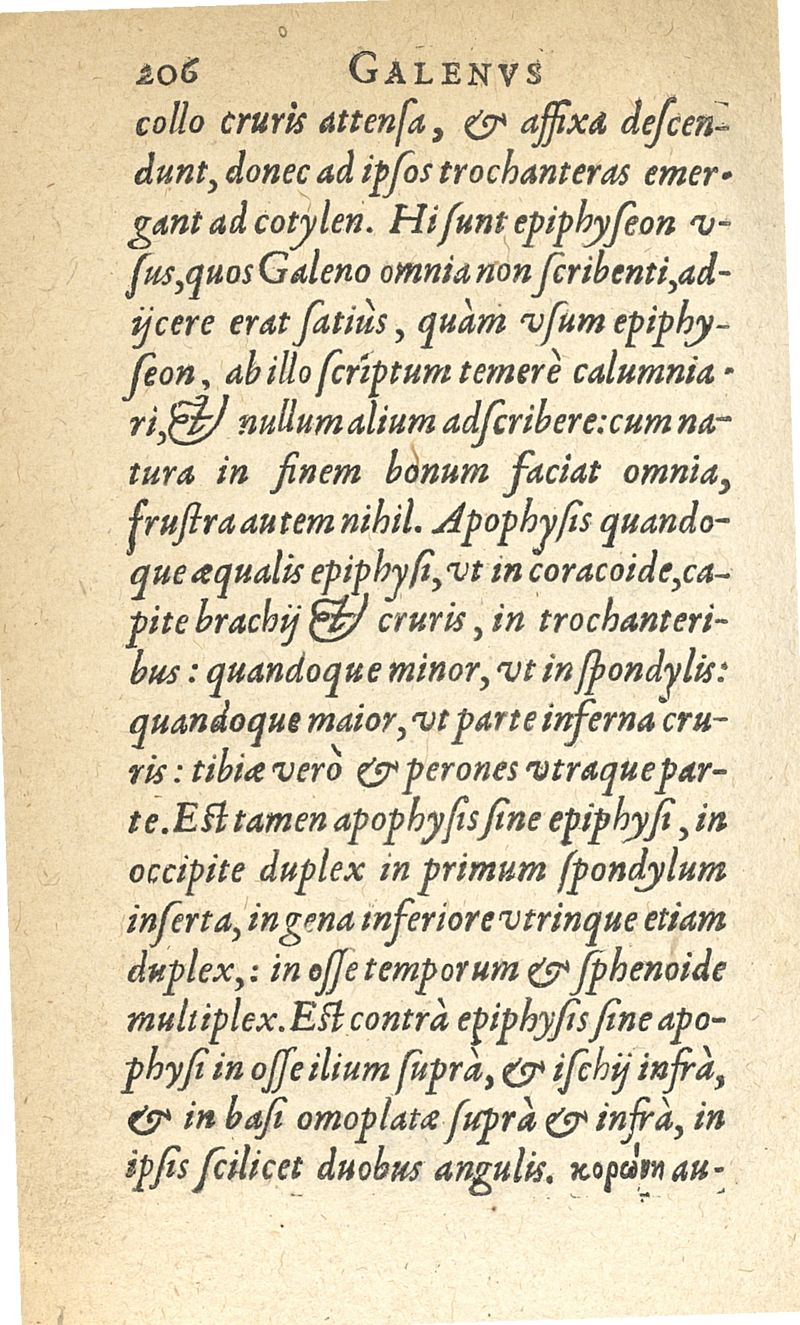 206 GALENVS
collo cruris attenſa, & affixa deſcen-
dunt, donec ad ipſos trochanteras emer-
gant ad cotylen. Hi ſunt epiphyſeon v-
ſus, quos Galeno omnia non ſcribenti, ad-
ijcere erat ſatiùs, quàm vſum epiphy-
ſeon, ab illo ſcriptum temerè calumnia-
ri, & nullum alium adſcribere: cum na-
tura in finem bonum faciat omnia,
fruſtra autem nihil. Apophyſis quando-
que æqualis epiphyſi, vt in coracoide, ca-
pite brachij & cruris, in trochanteri-
bus: quandoque minor, vt in ſpondylis:
quandoque maior, vt parte inferna cru-
ris: tibiæ verò & perones vtraque par-
te. Eſt tamen apophyſis ſine epiphyſi, in
occipite duplex in primum ſpondylum
inſerta, in gena inferiore vtrinque etiam
duplex,: in oſſe temporum & ſphenoide
multiplex. Eſt contrà epiphyſis ſine apo-
phyſi in oſſe ilium ſuprà, & iſchij infrà,
& in baſi omoplatæ ſuprà & infrà, in
ipſis ſcilicet duobus angulis. κορώνη au-